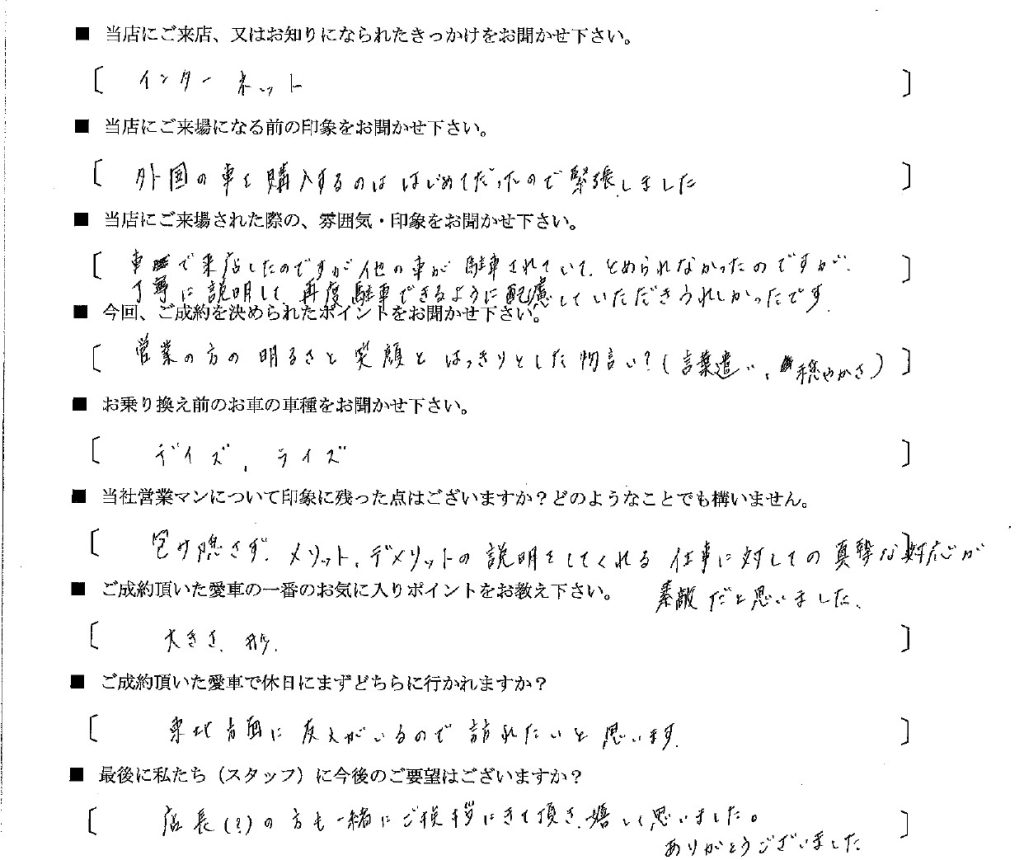 ■ 当店にご来店、又はお知りになられたきっかけをお聞かせ下さい。
〔 インターネット 〕
■ 当店にご来場になる前の印象をお聞かせ下さい。
〔 外国の車を購入するのははじめてだったので緊張しました 〕
■ 当店にご来場された際の、雰囲気・印象をお聞かせ下さい。
〔 車で来店したのですが他の車が駐車されていて、とめられなかったのですが、 〕
丁寧に説明して、再度駐車できるように配慮していただきうれしかったです
■ 今回、ご成約を決められたポイントをお聞かせ下さい。
〔 営業の方の明るさと笑顔とはっきりとした物言い?(言葉遣い、穏やかさ) 〕
■ お乗り換え前のお車の車種をお聞かせ下さい。
〔 デイズ、ライズ 〕
■ 当社営業マンについて印象に残った点はございますか?どのようなことでも構いません。
〔 包み隠さず、メリット、デメリットの説明をしてくれる仕事に対しての真摯な対応が 〕
素敵だと思いました、
■ ご成約頂いた愛車の一番のお気に入りポイントをお教え下さい。
〔 大きさ、形、 〕
■ ご成約頂いた愛車で休日にまずどちらに行かれますか?
〔 東北方面に友人がいるので訪れたいと思います。 〕
■ 最後に私たち(スタッフ)に今後のご要望はございますか?
〔 店長(?)の方も一緒にご挨拶にきて頂き、嬉しく思いました。 〕
ありがとうございました